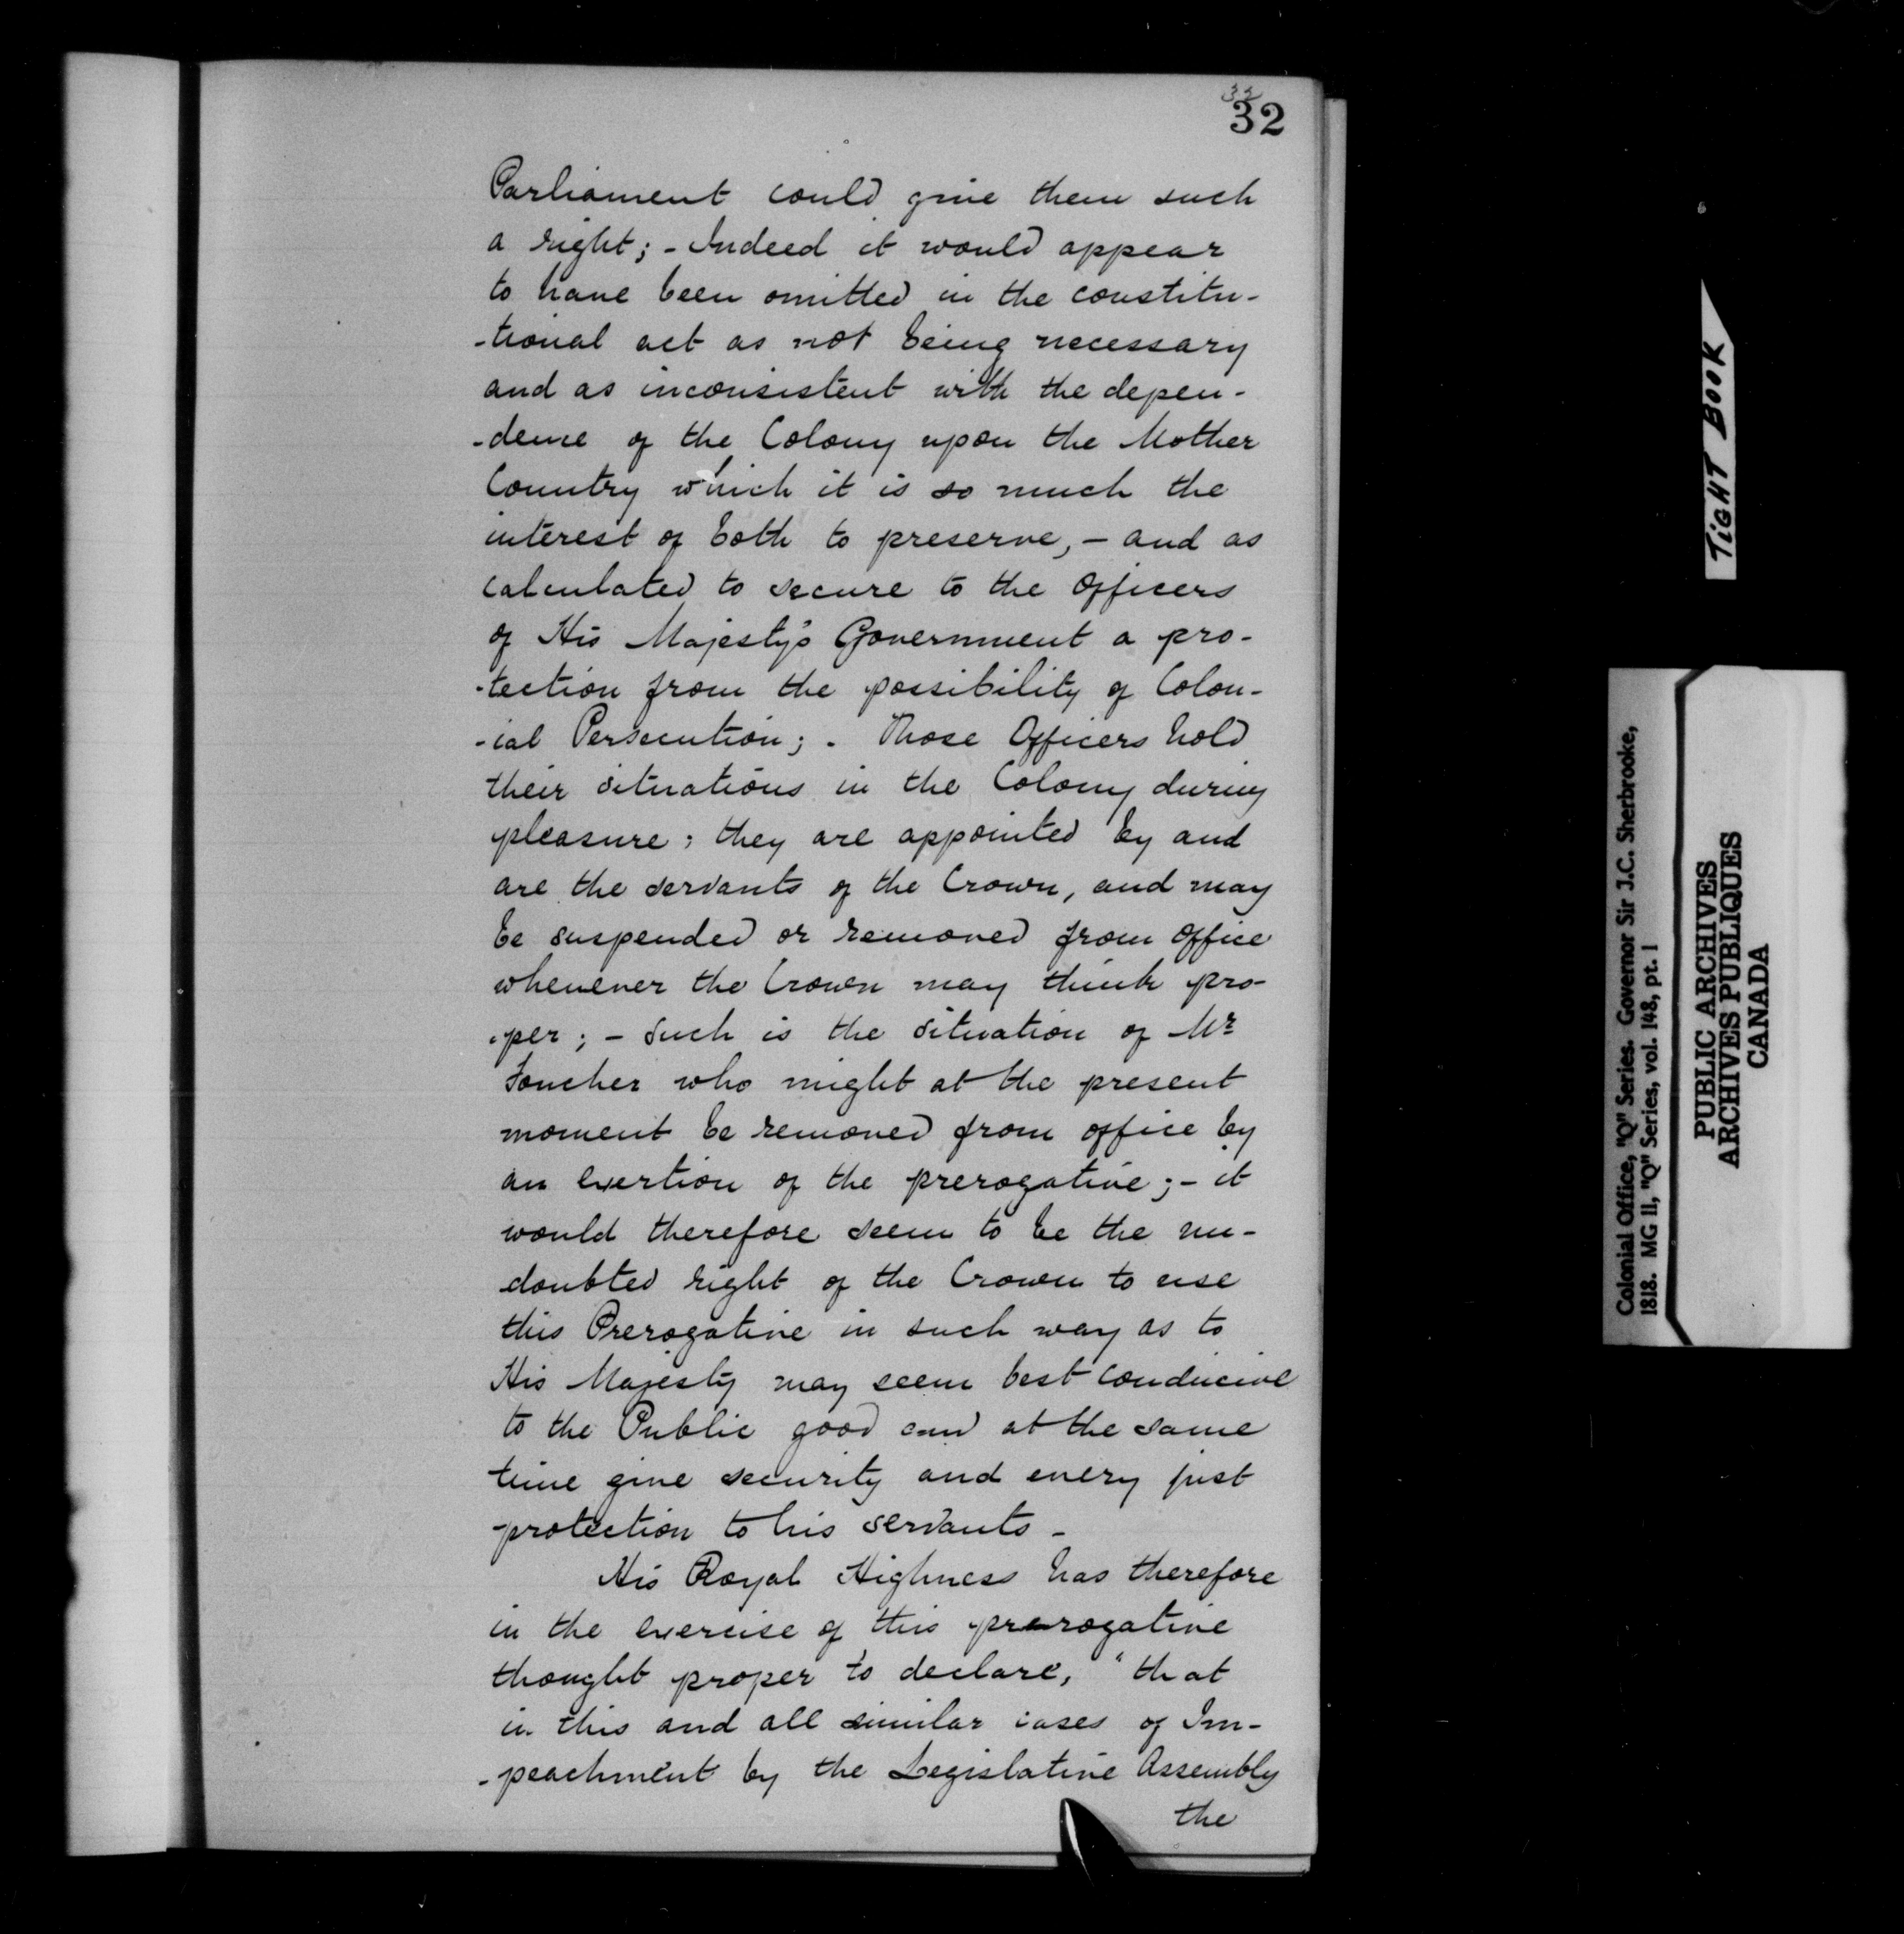 32
32
Parliament could give them such
a right; - Indeed it would appear
to have been omitted in the constitu-
-tional act as not being necessary
and as inconsistent with the depen-
-dence of the Colony upon the Mother
Country which it is so much the
interest of both to preserve, - and as
calculated to secure to the Officers
of His Majesty's Government a pro-
-tection from the possibility of Colon-
-ial Persecution; - Those Officers hold
their situations in the Colony during
pleasure; they are appointed by and
are the servants of the Crown, and may
be suspended or removed from office
whenever the Crown may think pro-
-per; - Such is the situation of Mr
Foucher who might at the present
moment be removed from office by
an exertion of the prerogative; - it
would therefore seem to be the un-
doubted right of the Crown to use
this Prerogative in such way as to
His Majesty may seem best conducive
to the Public good and at the same
time give security and every just
protection to his servants -
His Royal Highness has therefore
in the exercise of this prerogative
thought proper to declare, "that
in this and all similar cases of Im-
-peachment by the Legislative Assembly
the
TIGHT BOOK
Colonial Office, "Q" Series. Governor Sir J.C. Sherbrooke,
1818. MG 11, "Q" Series, vol. 148, pt. 1
PUBLIC ARCHIVES
ARCHIVES PUBLIQUES
CANADA